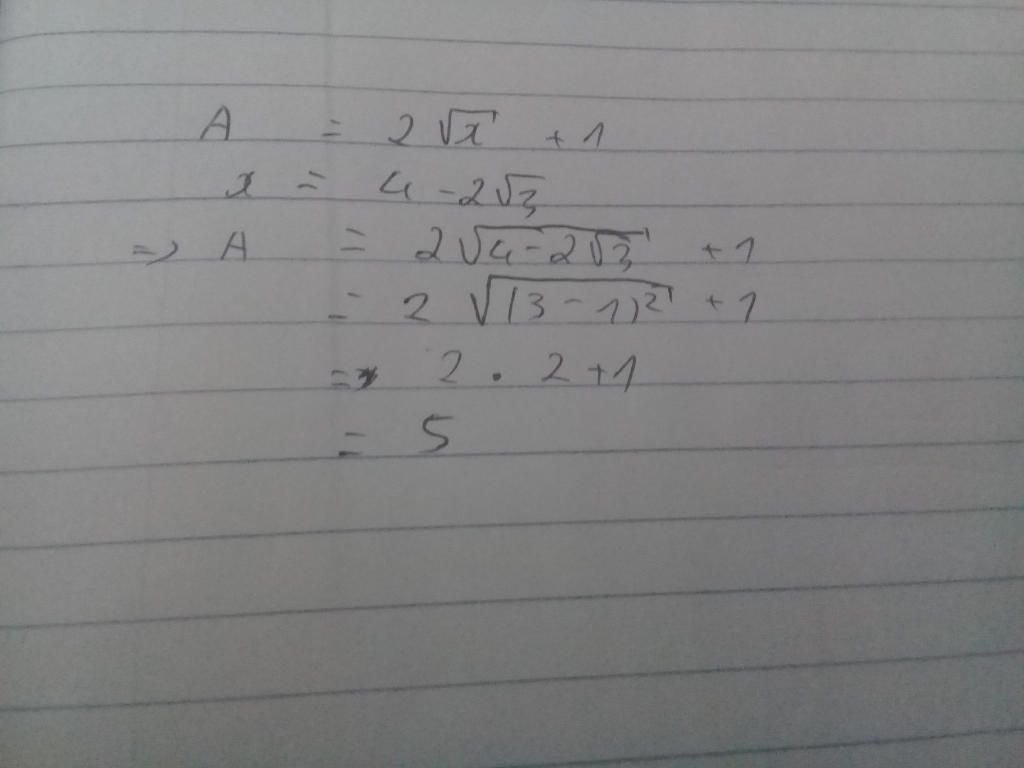 A = 2√x + 1
x = 4 - 2√3
=> A = 2√(4 - 2√3) + 1
= 2 √((3 - 1)²) + 1
= 2 . 2 + 1
= 5